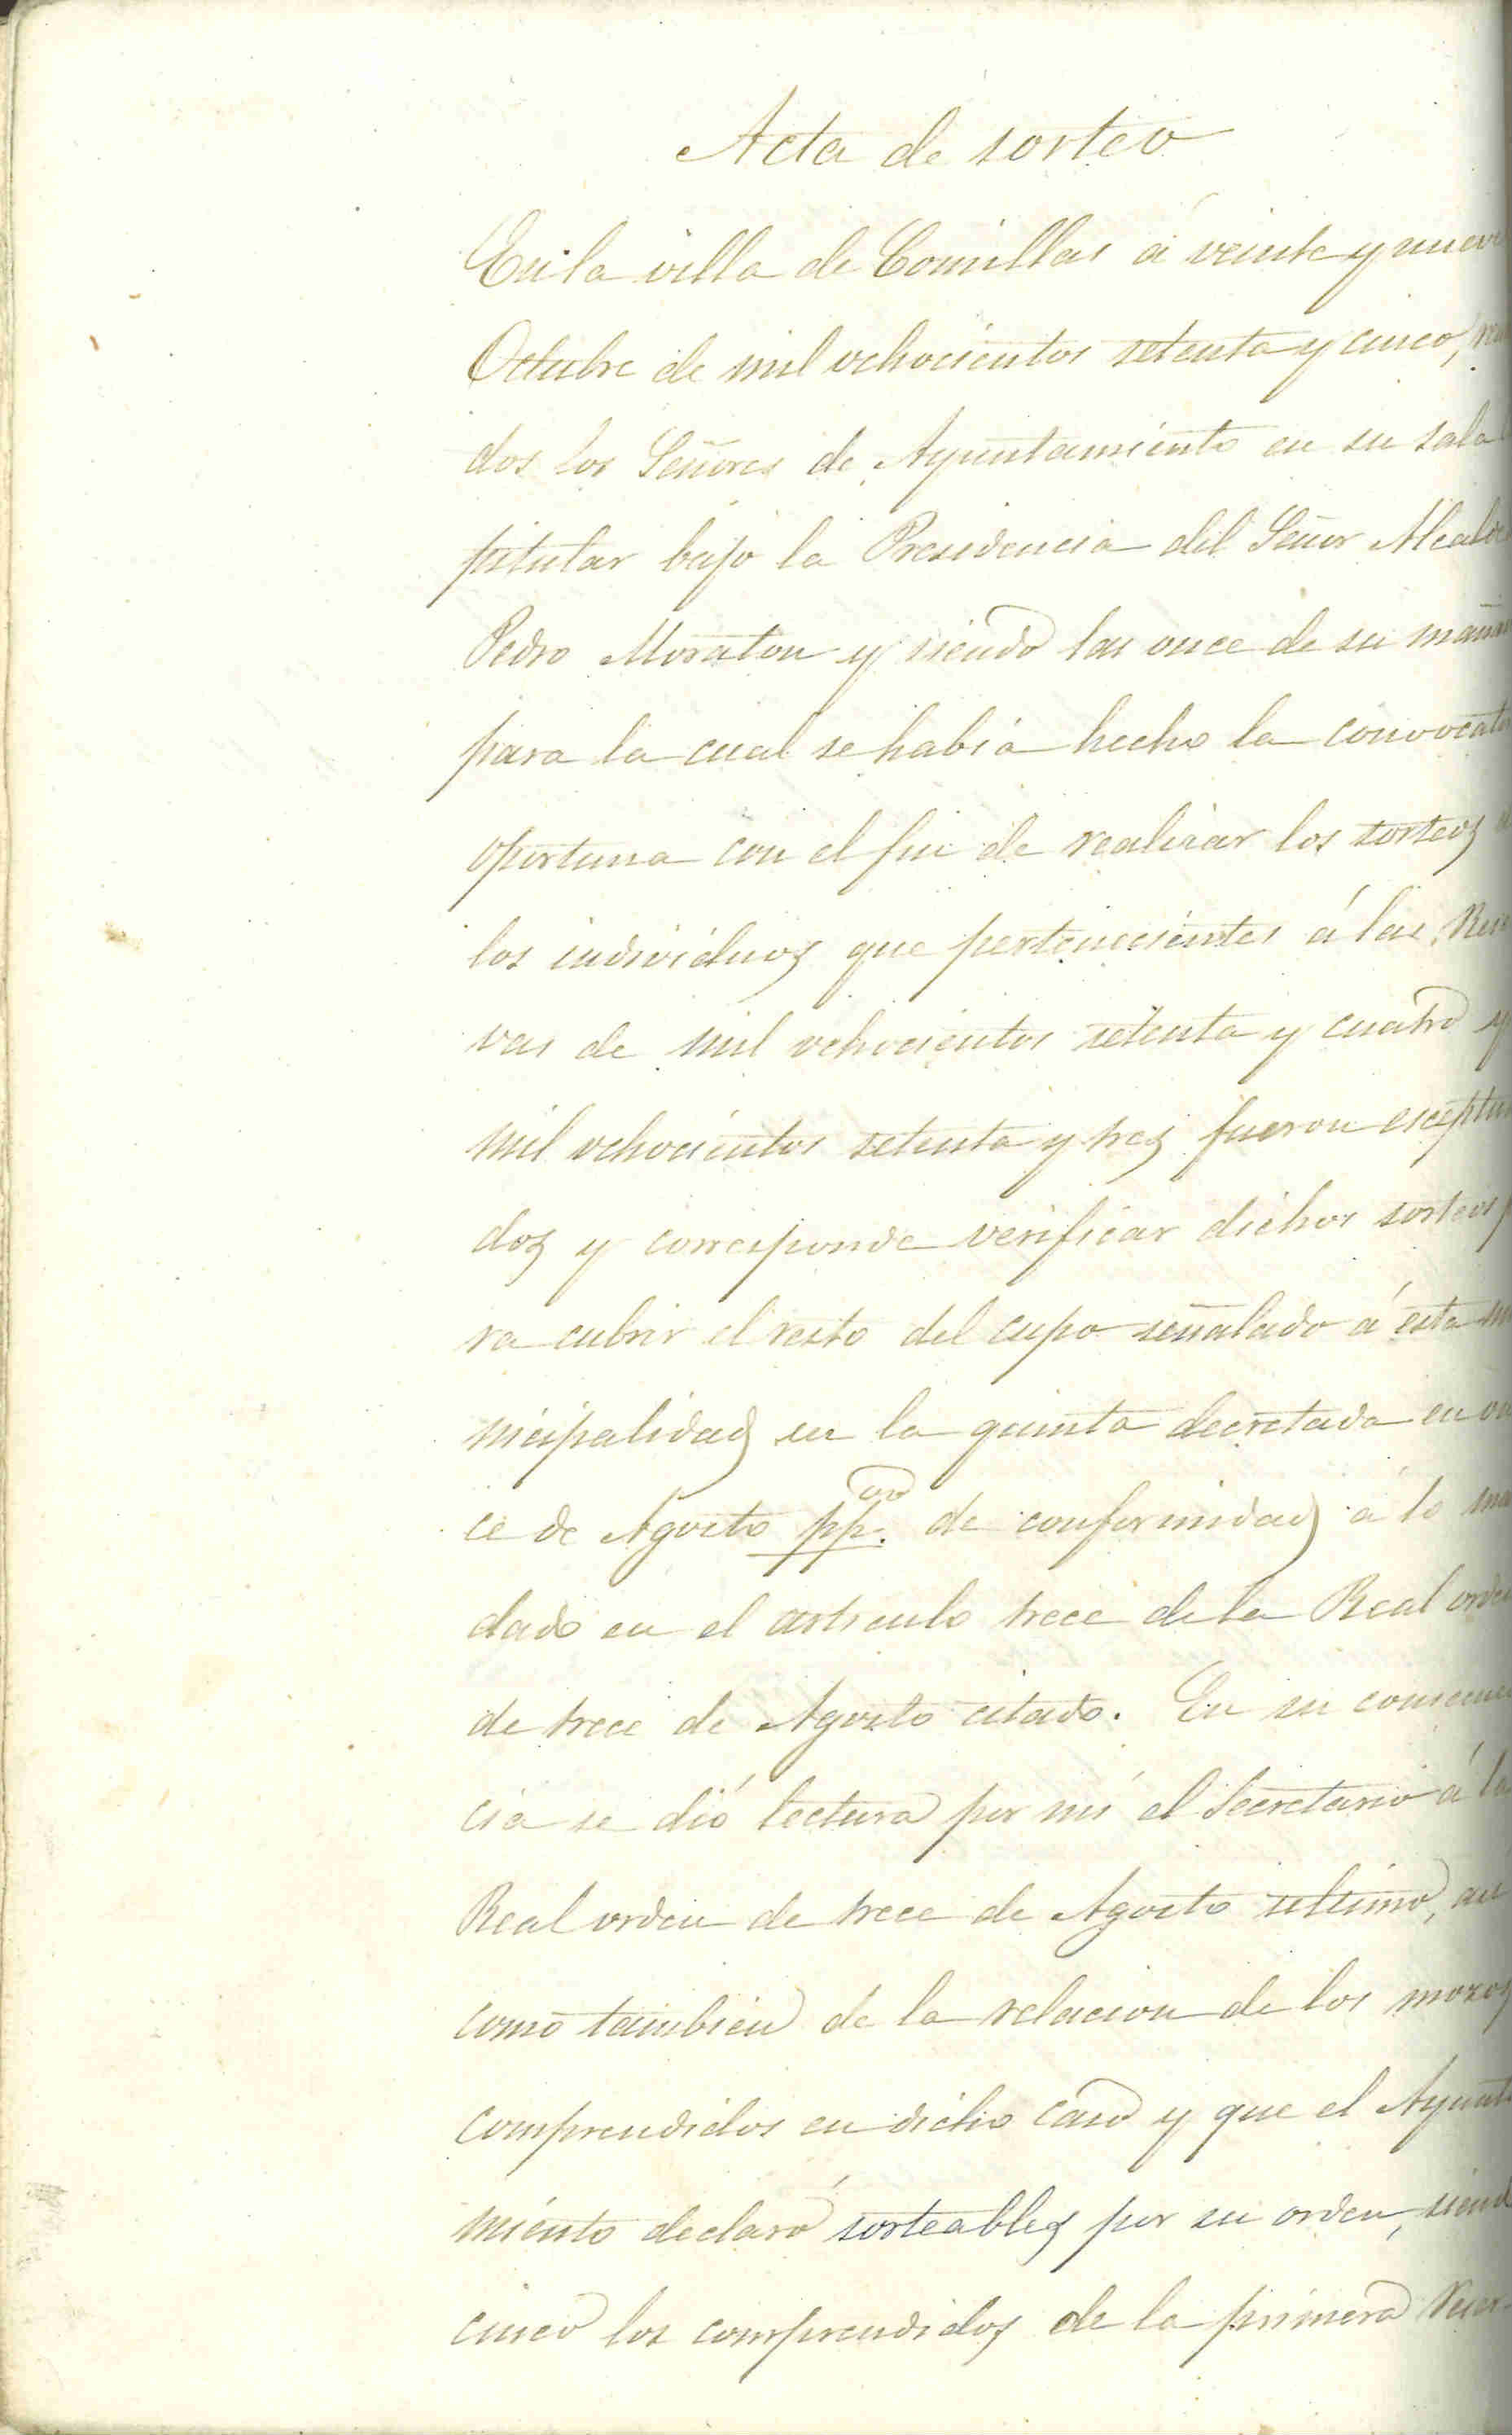 Acta de sorteo
En la villa de Comillas á veinte y nueve
Octubre de mil ochocientos setenta y cinco,
dos los Señores de Ayuntamiento en su sala
pitular bajo la Presidencia del Señor Alcalde
Pedro Moraton y siendo las once de su mañana
para la cual se habia hecho la convocato
oportuna con el fin de realizar los sorteos
los individuos que pertenecientes á las Reser
vas de mil ochocientos setenta y cuatro y
mil ochocientos setenta y tres fueron esceptua
dos y corresponde verificar dichos sorteos p
ra cubrir el resto del cupo señalado á esta mu
nicipalidad en la quinta decretada en on
ce de Agosto pp.do de conformidad á lo man
dado en el articulo trece de la Real orden
de trece de Agosto citado. En su consecuen
cia se dió lectura por mi el Secretario á la
Real orden de trece de Agosto ultimo, asi
como tambien de la relacion de los mozos
comprendidos en dicho caso y que el Ayunta
miento declaró sorteables por su orden, siendo
cinco los comprendidos de la primera Reser-